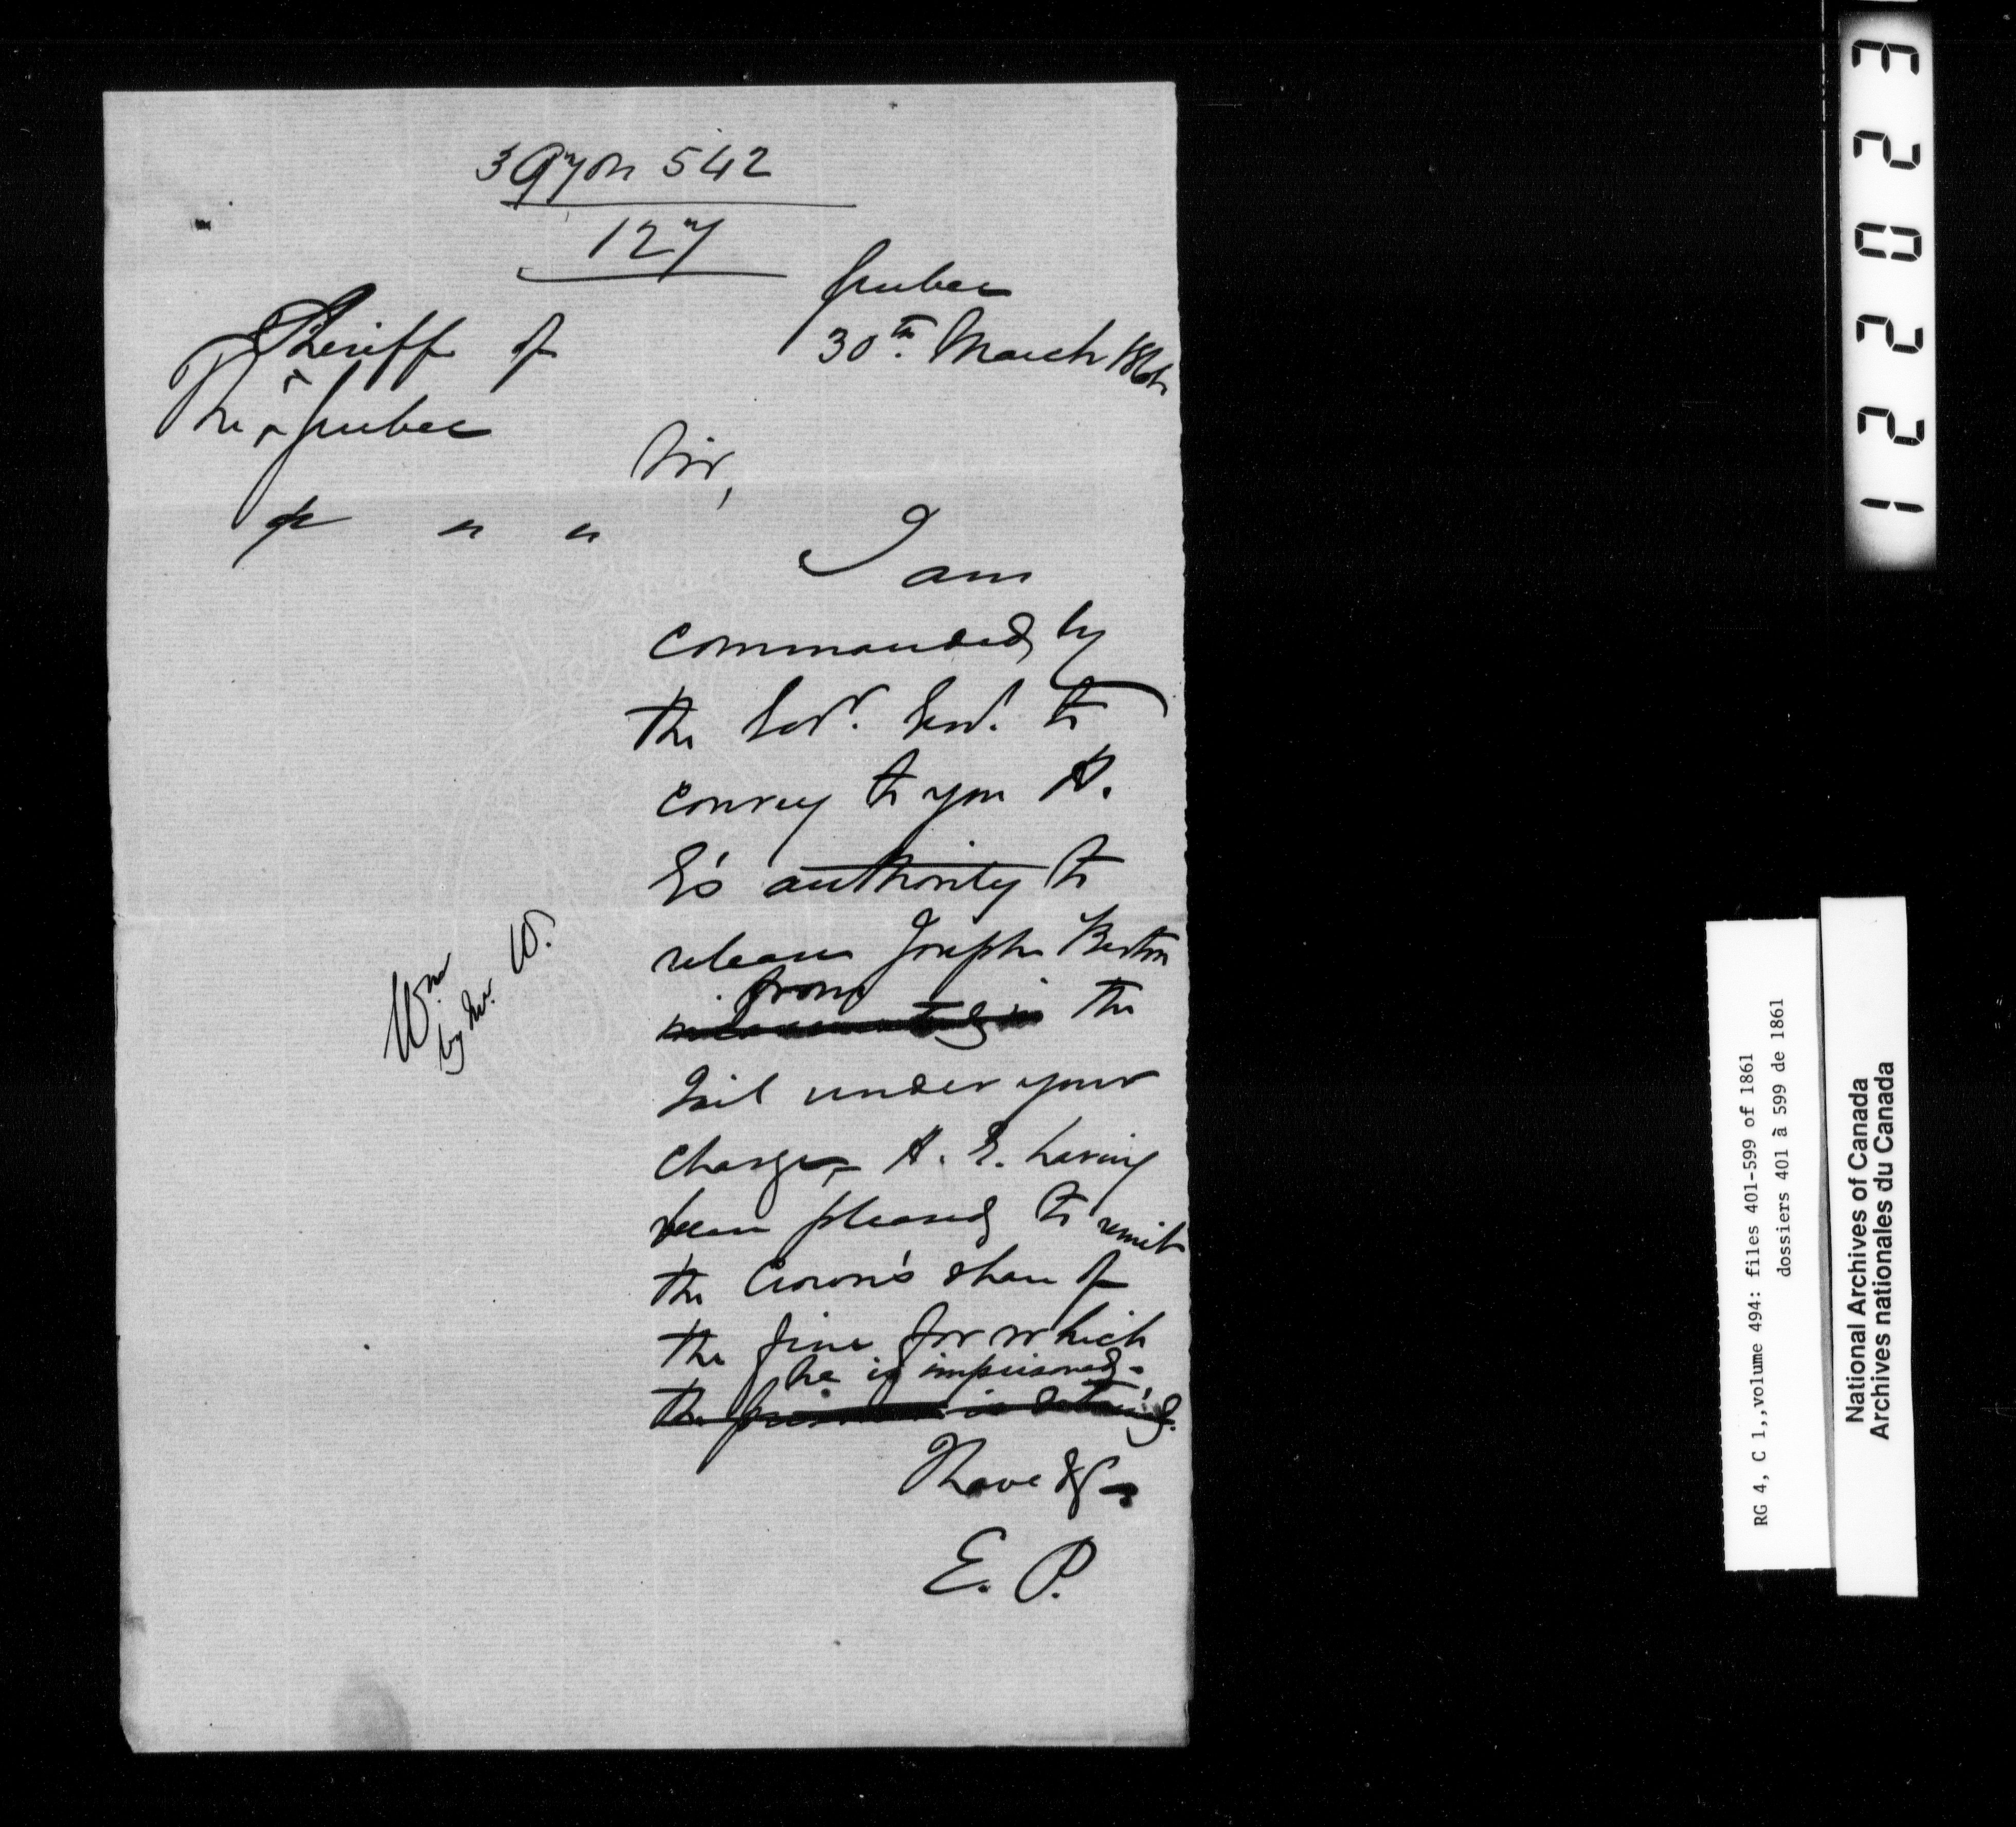 397 on 542
127
Quebec
30th. March 1861
Sheriff of
The Quebec
Sir,
I am
commanded by
the Govr. Genl. to
convey to you H.
E's authority to
release Joseph
from
the
Gail under your
charge, H. E. having
been pleased to remit
the Crown's share of
the fine for which
he is imprisoned-
the prisoner is detained.
I have &c
E. P.
Wm
by Mr. W.
12203
RG 4, C 1,,volume 494: files 401-599 of 1861
dossiers 401 à 599 de 1861
National Archives of Canada
Archives nationales du Canada